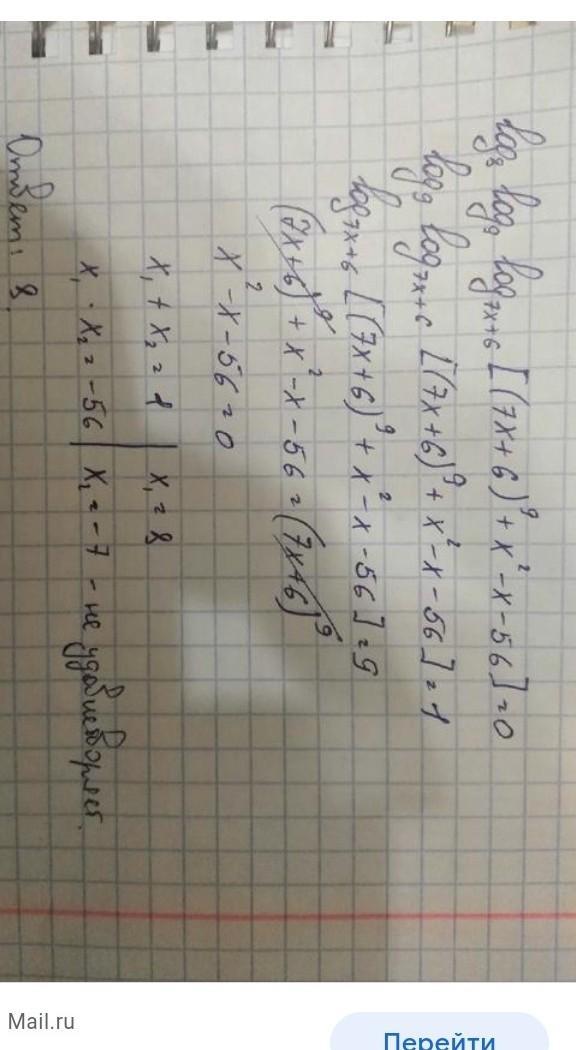 log₈ log₉ log₇ₓ₊₆ [(7x+6)⁹ + x² - x - 56] = 0
log₉ log₇ₓ₊₆ [(7x+6)⁹ + x² - x - 56] = 1
log₇ₓ₊₆ [(7x+6)⁹ + x² - x - 56] = 9
(7x+6)⁹ + x² - x - 56 = (7x+6)⁹
x² - x - 56 = 0
x₁ + x₂ = 1 | x₁ = 8
x₁ · x₂ = -56 | x₂ = -7 - не удовлетворяет.
Ответ: 8.
Mail.ru
Перейти